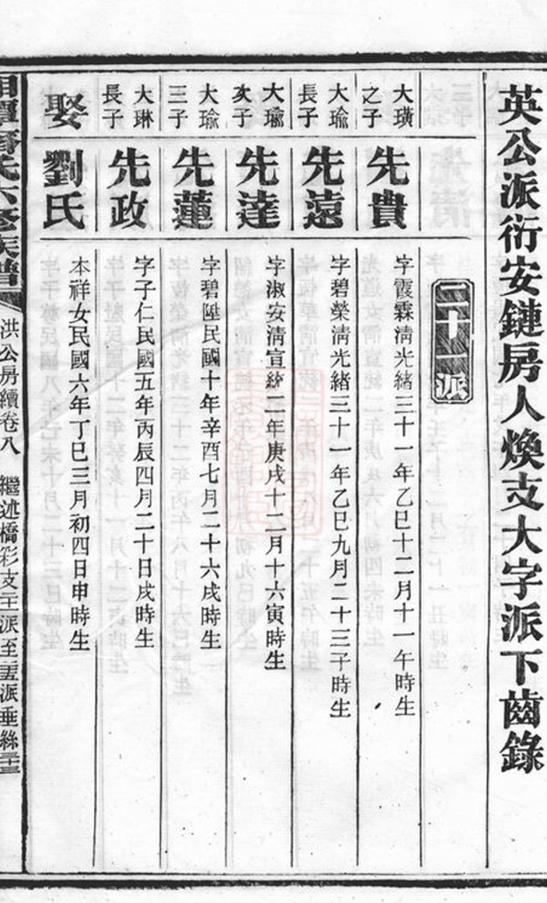 英公派衍安鏈房人煥支大字派下齒錄
二十一派
大璜之子
先貴
字霞霖清光緒三十一年乙巳十二月十一午時生
大瑜長子
先遠
字碧榮清光緒三十一年乙巳九月二十三子時生
大瑜次子
先達
字淑安清宣統二年庚戌十月十六寅時生
大瑜三子
先蓮
字碧陞民國十年辛酉七月二十六戌時生
大琳長子
先政
字子仁民國五年丙辰四月二十日戌時生
娶
劉氏
本祥女民國六年丁巳三月初四日申時生
湘潭齊氏六修族譜
洪公房續卷八
繼述橋彩支至派至雲派垂絲